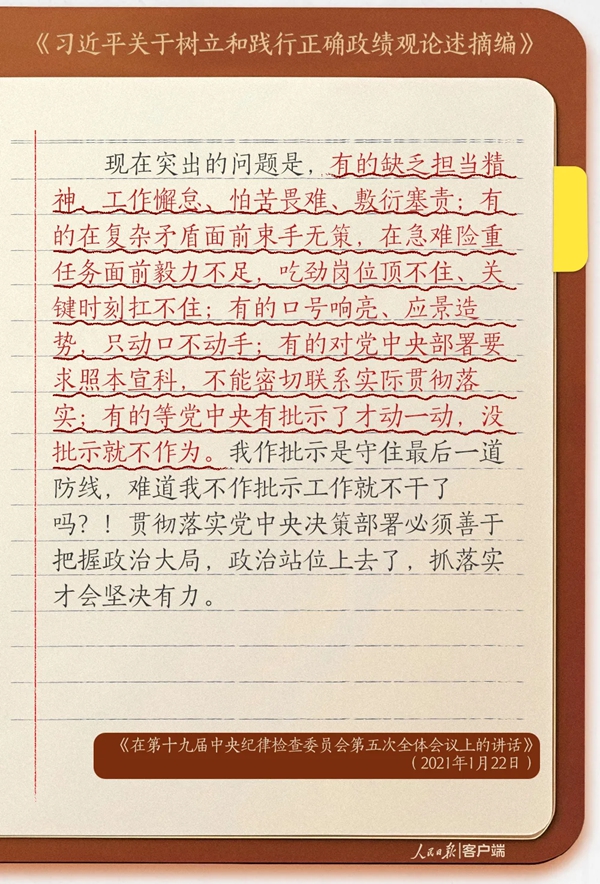 《习近平关于树立和践行正确政绩观论述摘编》
现在突出的问题是，有的缺乏担当精
神、工作懈怠、怕苦畏难、敷衍塞责；有
的在复杂矛盾面前束手无策，在急难险重
任务面前毅力不足，吃劲岗位顶不住、关
键时刻扛不住；有的口号响亮、应景造
势，只动口不动手；有的对党中央部署要
求照本宣科，不能密切联系实际贯彻落
实；有的等党中央有批示了才动一动，没
批示就不作为。我作批示是守住最后一道
防线，难道我不作批示工作就不干了
吗？！贯彻落实党中央决策部署必须善于
把握政治大局，政治站位上去了，抓落实
才会坚决有力。
《在第十九届中央纪律检查委员会第五次全体会议上的讲话》
（2021年1月22日）
人民日报|客户端